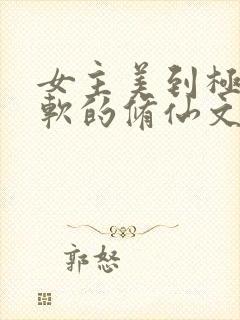 女主美到极
软的脩仙文
郭怒